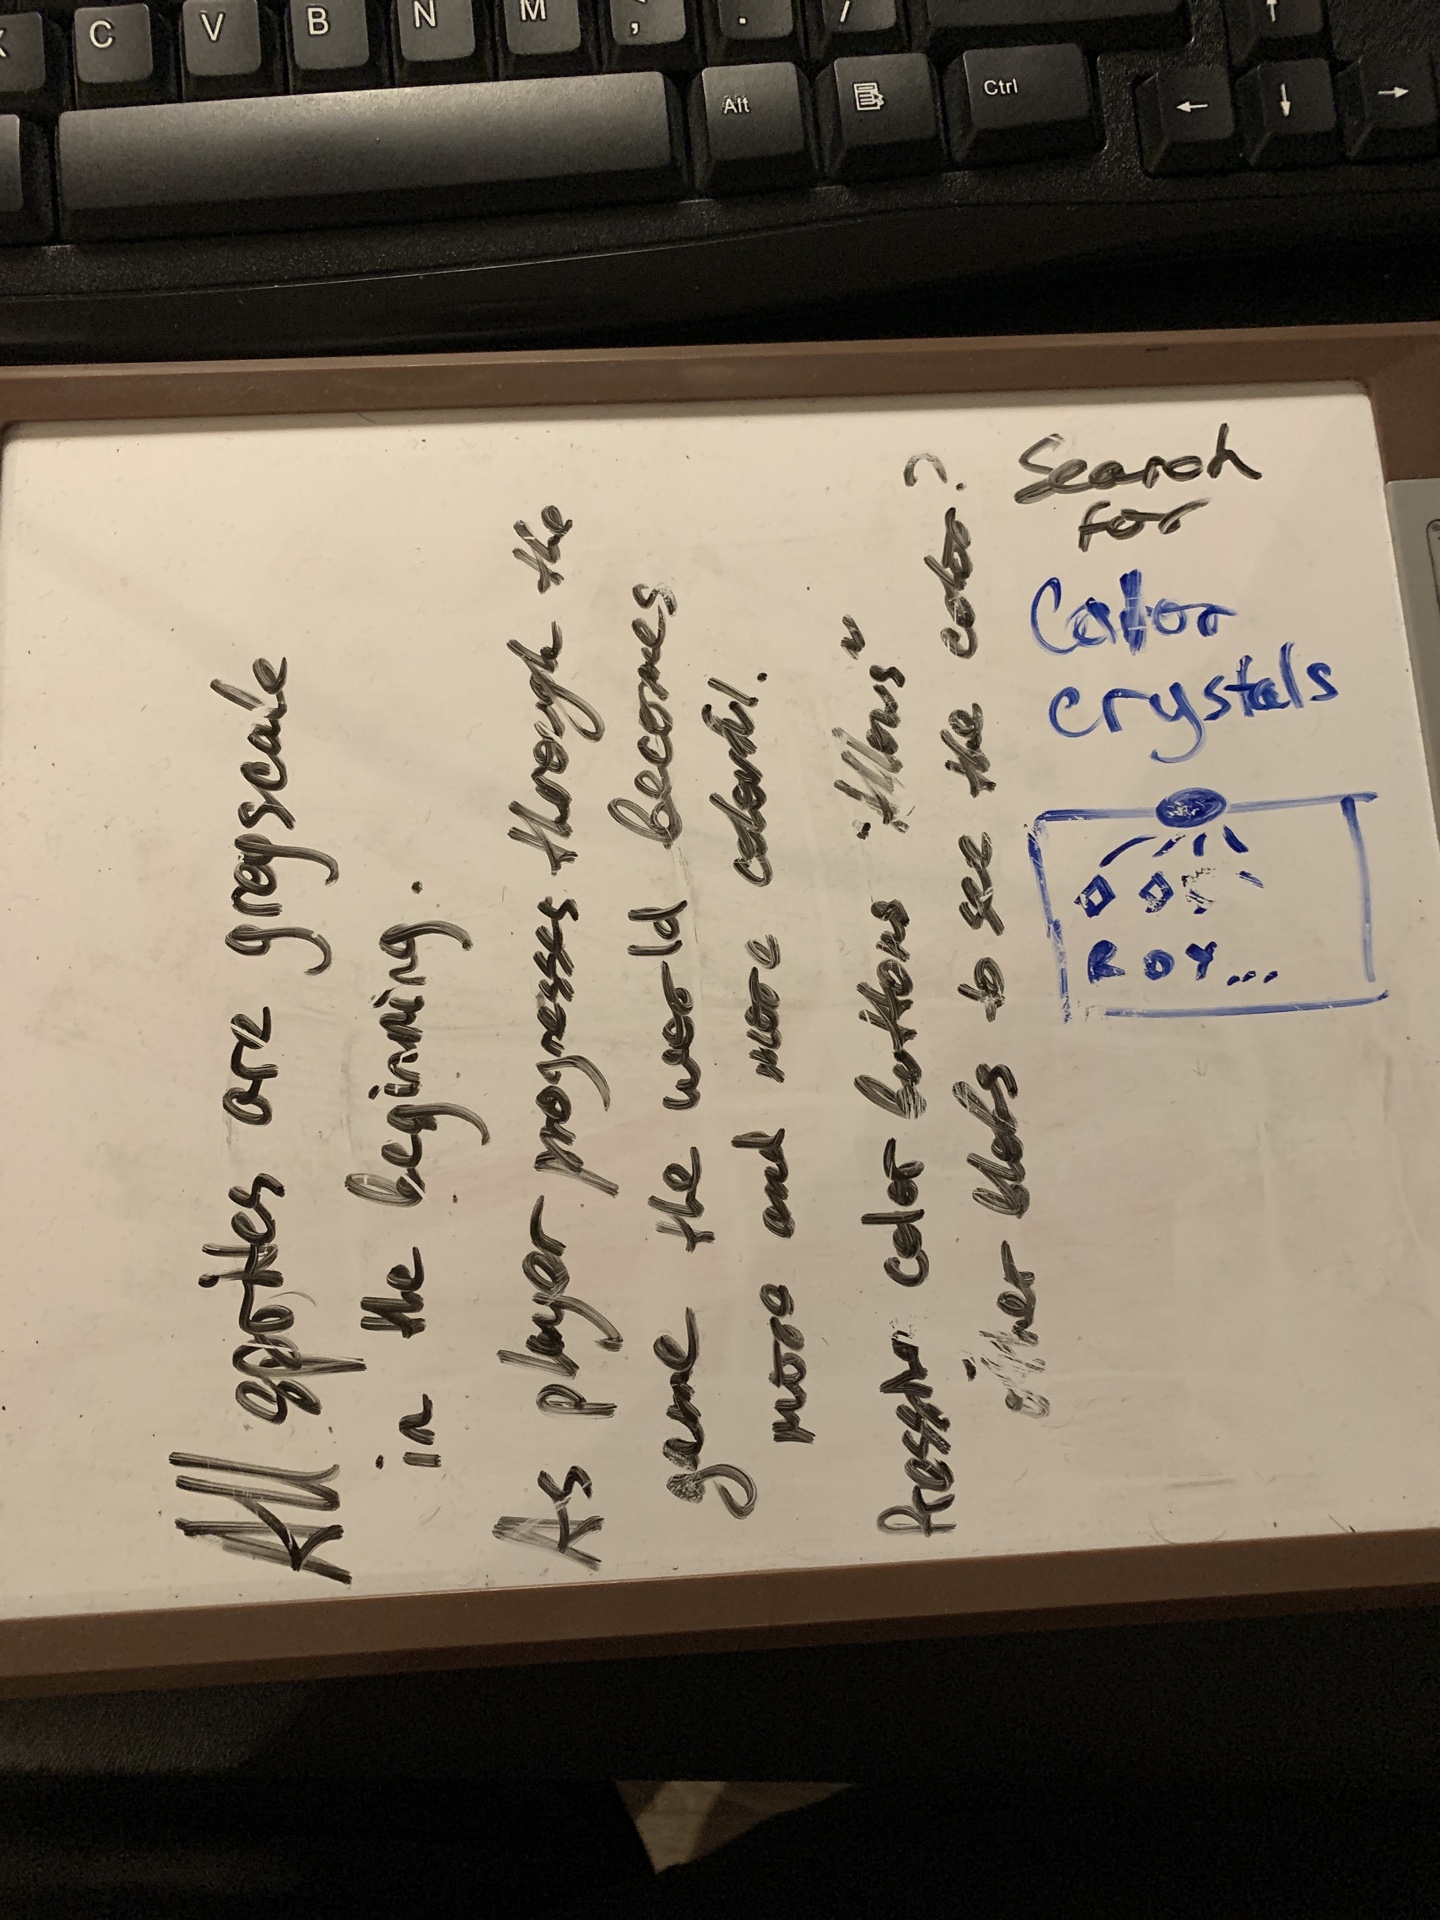 C V B N M ; , . /
Alt Ctrl
All sprites are grayscale
in the beginning.
As player progresses through the
game the world becomes
more and more colorful.
Pressing color buttons "allows"
other blobs to see the color?
Search
for
Color
crystals
R O Y ...